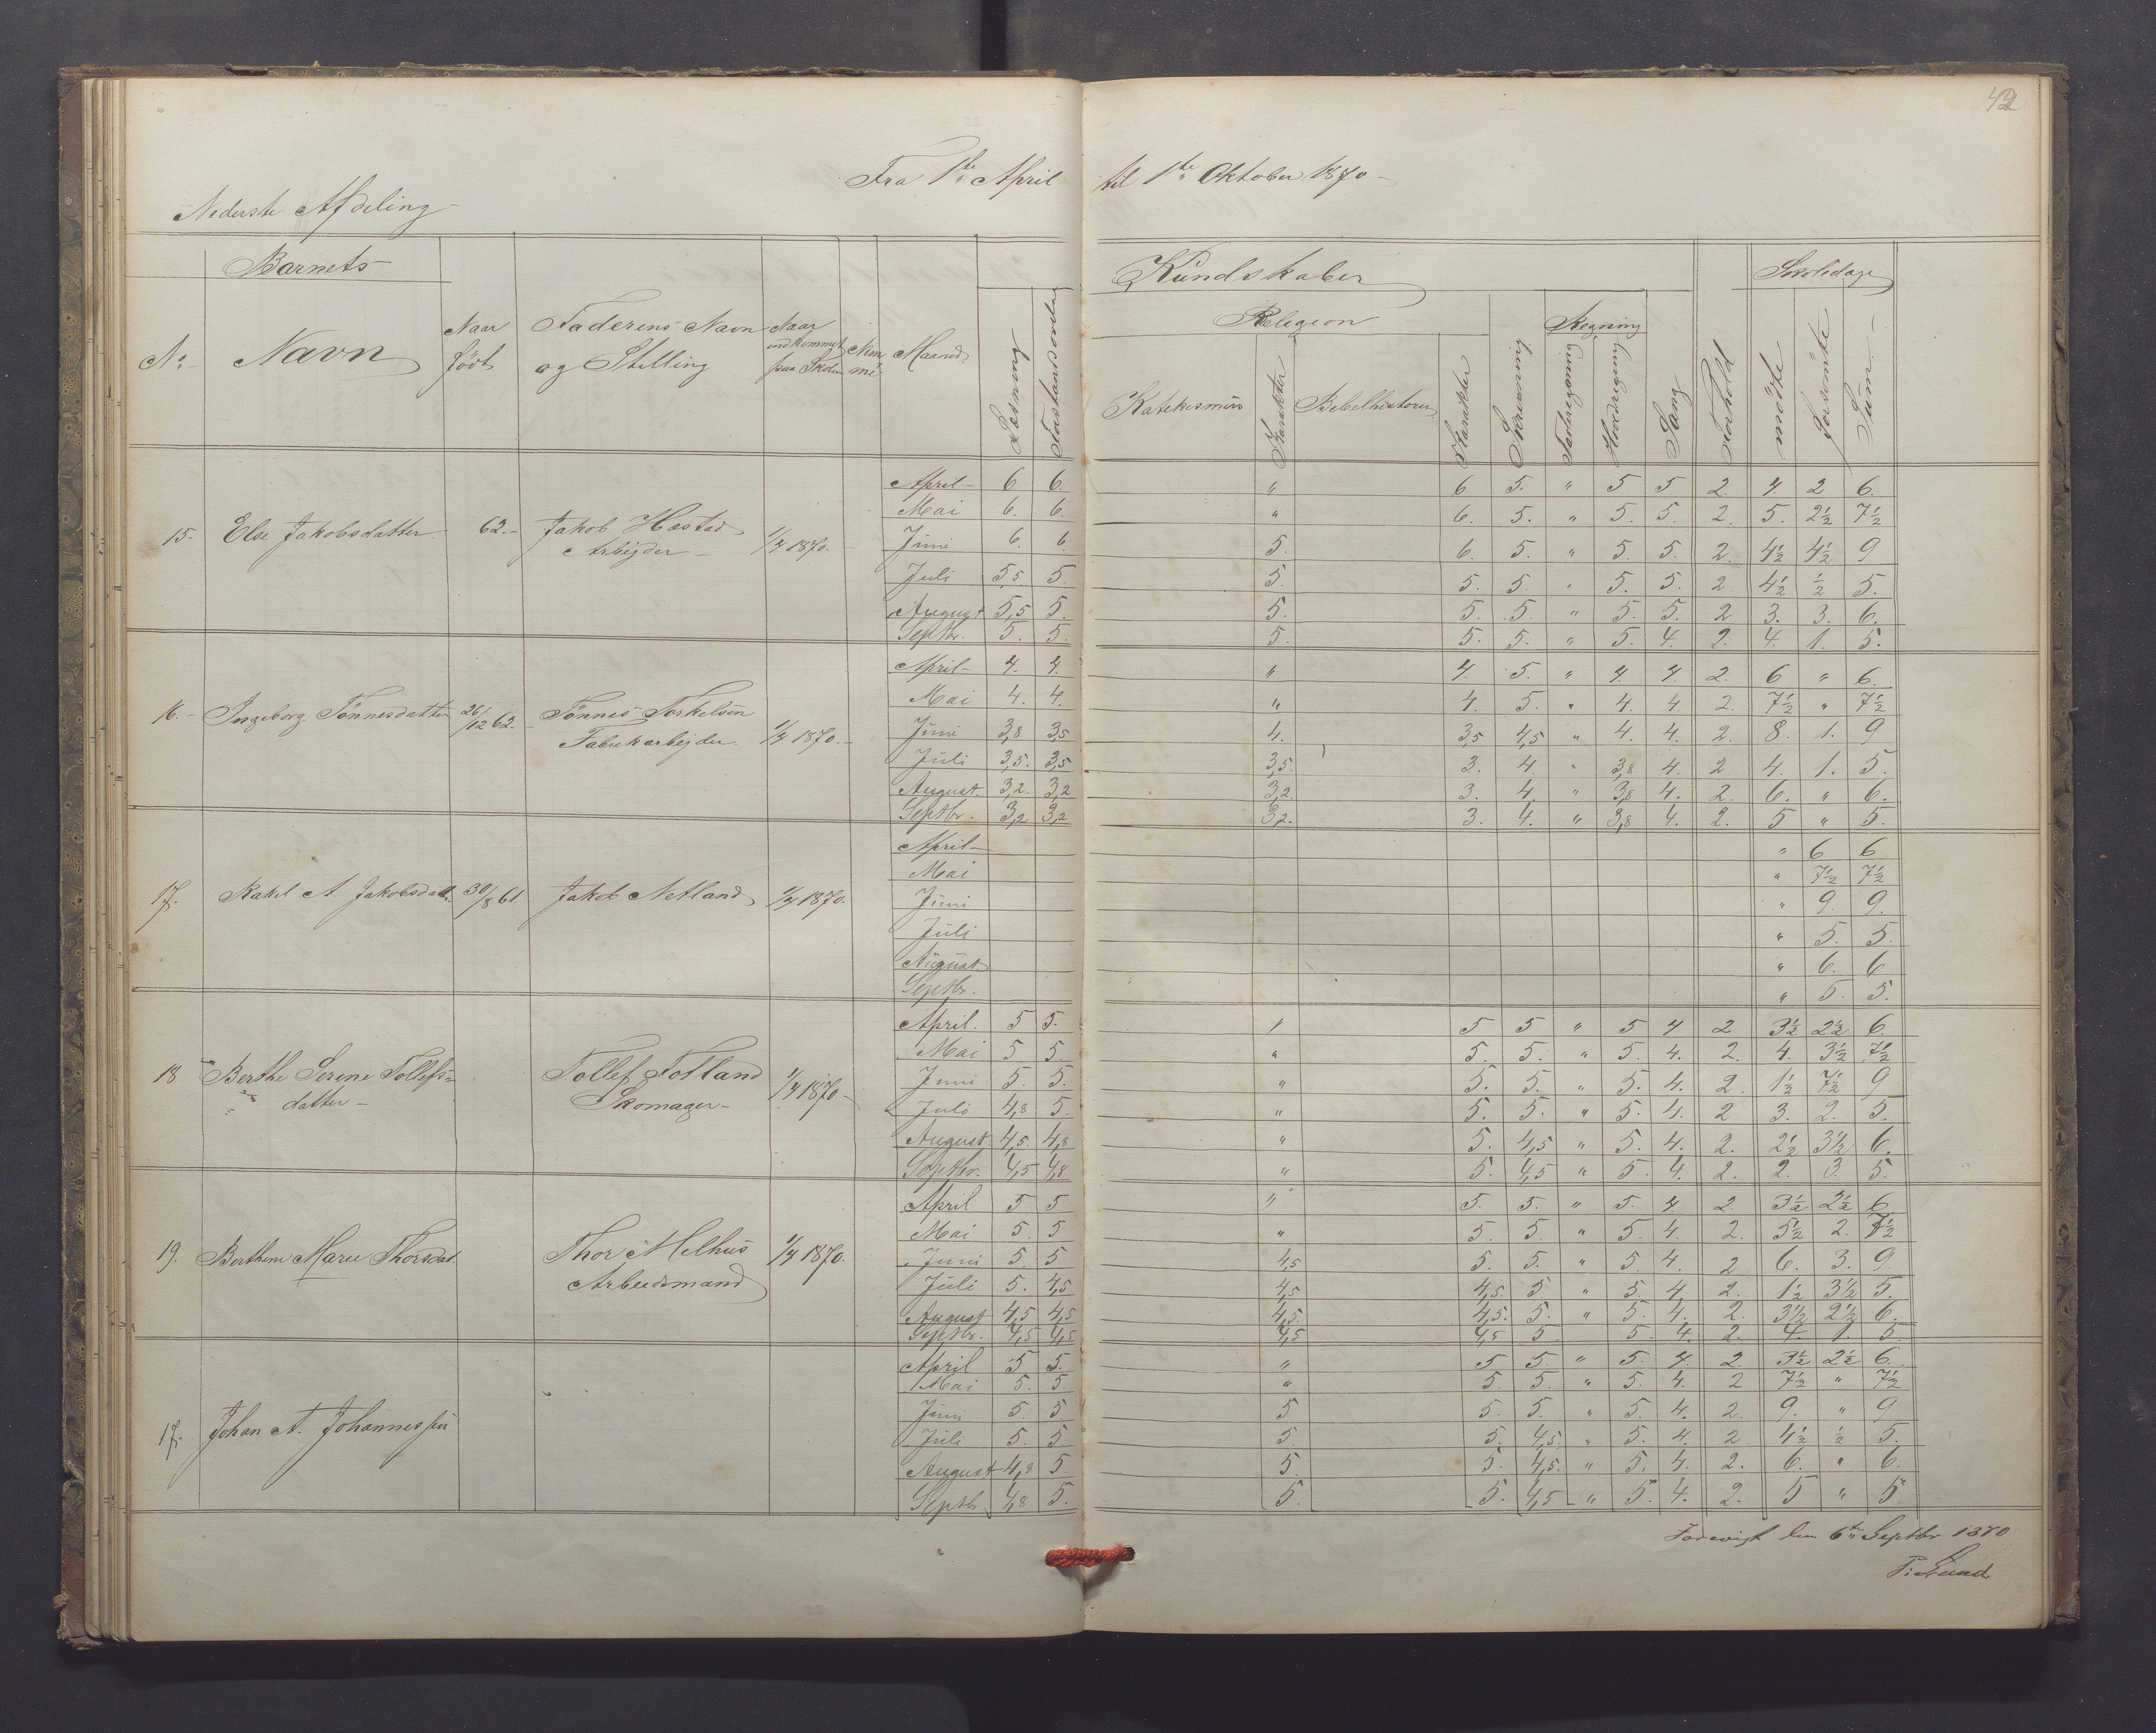 Nederste Afdeling
Fra 1ste April til 1ste Oktober 1870 -
Barnets
Kundskaber
Skoledage
Religion
Regning
No Navn Naar født Faderens Navn og Stilling Naar indkommet paa Skolen Maaned Læsning Forstandsøvelse Katekismus Karakter Bibelhistorie Karakter Skrivning Tavleregning Hovedregning Sang Forhold mødte forsømte Sum
15. Else Jakobsdatter 62.- Jakob Hæstad Arbejder - 1/4 1870.
April - 6 6. " 6 5. " 5 5 2. 4. 2 6.
Mai 6. 6. " 6. 5. " 5. 5. 2. 5. 2½ 7½
Juni 6. 6. 5. 6. 5. " 5. 5. 2. 4½ 4½ 9
Juli 5,5 5. 5. 5. 5. " 5. 5. 2 4½ ½ 5.
August 5,5 5. 5. 5. 5. " 5. 5. 2 3. 3. 6.
Septbr. 5. 5. 5. 5. 5. " 5. 4. 2. 4. 1. 5.
16. - Ingeborg Tönnesdatter 26/12 62. - Tönnes Torkelsen Fabrikarbejder. 1/4 1870. -
April - 4. 4. " 4. 5. " 4. 4 2. 6 " 6.
Mai 4. 4. " 4. 5. " 4. 4. 2. 7½ " 7½
Juni 3,8 3,5 4. 3,5 4,5 " 4. 4. 2. 8. 1. 9
Juli 3,5. 3,5 3,5. 3. 4. " 3,8 4. 2 4. 1. 5.
August. 3,2. 3,2 3,2. 3. 4 " 3,8 4. 2. 6. " 6.
Septbr. 3,2 3,2 3,2. 3. 4. " 3,8 4. 2. 5 " 5.
17. Rakel A. Jakobsdatt. 30/8 61. Jakob Netland 1/4 1870.
April - " 6 6
Mai " 7½ 7½
Juni " 9. 9.
Juli " 5. 5.
August " 6. 6
Septbr. " 5. 5.
18 Berthe Serine Tollefs= datter - Tollef Totland Skomager - 1/4 1870 -
April. 5 5. " 5 5 " 5 4 2 3½ 2½ 6.
Mai 5 5. " 5. 5. " 5. 4. 2. 4. 3½ 7½
Juni 5. 5. " 5. 5. " 5. 4. 2. 1½ 7½ 9
Juli 4,8 5. " 5. 5. " 5. 4. 2 3. 2. 5.
August. 4,5. 4,8 " 5. 4,5 " 5. 4. 2. 2½ 3½ 6.
Septbr. 4,5 4,8 " 5. 4,5 " 5 4. 2. 2. 3. 5.
19. Berthine Marie Thorsdat. Thor Melhus Arbeidsmand 1/4 1870.
April 5 5 " 5. 5. " 5. 4 2. 3½ 2½ 6
Mai 5. 5 " 5. 5. " 5. 4. 2. 5½ 2. 7½
Juni 5. 5 4,5 5. 5. " 5. 4. 2 6. 3. 9.
Juli 5. 4,5 4,5 4,5. 5 " 5. 4. 2. 1½ 3½ 5.
August 4,5 4,5 4,5. 4,5. 5. " 5. 4. 2. 3½ 2½ 6.
Septbr. 4,5 4,5 4,5 4,5 5 5. 4. 2. 4. 1. 5.
17. Johan A. Johannessen
April 5 5. " 5 5. " 5. 4. 2. 3½ 2½ 6.
Mai 5. 5. " 5. 5. " 5. 4. 2 7½ " 7½
Juni 5. 5 5 5. 5. " 5. 4. 2. 9. " 9
Juli 5. 5 5. 5. 4,5. " 5. 4. 2 4½ ½ 5.
August 4,8 5. 5. 5. 4,5. " 5. 4. 2. 6. " 6.
Septbr. 4,8 5. 5. 5. 4,5 " 5. 4. 2. 5 " 5
Forevist den 6te Septbr 1870